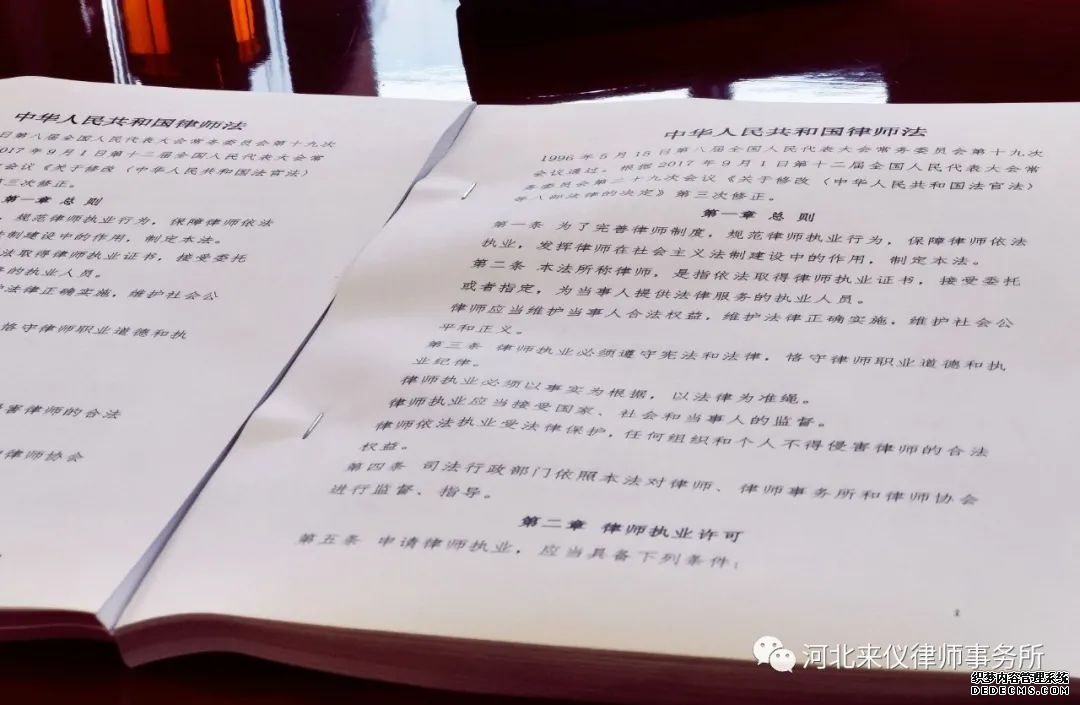 中华人民共和国律师法
日第八届全国人民代表大会常务委员会第十九次
2017年9月1日第十二届全国人民代表大会常
会议《关于修改〈中华人民共和国法官法〉
三次修正。
第一章 总 则
，规范律师执业行为，保障律师依法
法制建设中的作用，制定本法。
法取得律师执业证书，接受委托
的执业人员。
护法律正确实施，维护社会公
恪守律师职业道德和执
侵害律师的合法
律师协会
中华人民共和国律师法
1996年5月15日第八届全国人民代表大会常务委员会第十九次
会议通过。根据2017年9月1日第十二届全国人民代表大会常
务委员会第二十九次会议《关于修改〈中华人民共和国法官法〉
等八部法律的决定》第三次修正。
第一章 总 则
第一条 为了完善律师制度，规范律师执业行为，保障律师依法
执业，发挥律师在社会主义法制建设中的作用，制定本法。
第二条 本法所称律师，是指依法取得律师执业证书，接受委托
或者指定，为当事人提供法律服务的执业人员。
律师应当维护当事人合法权益，维护法律正确实施，维护社会公
平和正义。
第三条 律师执业必须遵守宪法和法律，恪守律师职业道德和执
业纪律。
律师执业必须以事实为根据，以法律为准绳。
律师执业应当接受国家、社会和当事人的监督。
律师依法执业受法律保护，任何组织和个人不得侵害律师的合法
权益。
第四条 司法行政部门依照本法对律师、律师事务所和律师协会
进行监督、指导。
第二章 律师执业许可
第五条 申请律师执业，应当具备下列条件：
河北来仪律师事务所
织梦内容管理系统
DEDECMS.COM